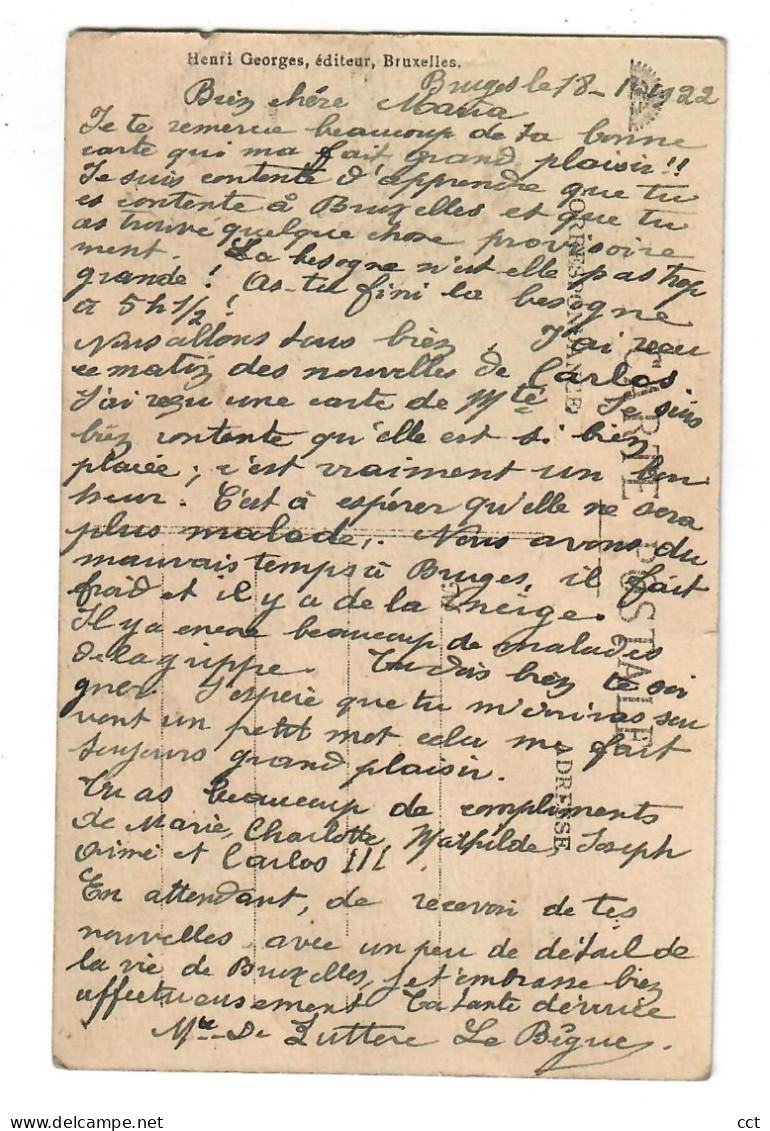 Henri Georges, éditeur, Bruxelles.
Bruges le 18-1-1922
Bien chére Maria
Je te remercie beaucoup de ta bonne
carte qui ma fait grand plaisir!!
Je suis contente d'apprendre que tu
es contente à Bruxelles et que tu
as trouvé quelque chose provisoire
ment. La besogne n'est elle pas trop
grande! As-tu fini la besogne
à 5 h 1/2!
Nous allons tous bien. J'ai reçu
ce matin des nouvelles de Carlos.
J'ai reçu une carte de Mte. Je suis
bien contente qu'elle est si bien
placée; c'est vraiment un bon
heur. C'est à espérer qu'elle ne sera
plus malade. Nous avons du
mauvais temps à Bruges, il fait
froid et il y a de la neige.
Il y a encore beaucoup de malades
de la grippe. Tu dois bien te soi
gner. J'espère que tu m'écriras sou
vent un petit mot celu me fait
toujours grand plaisir.
Tu as beaucoup de compliments
de Marie, Charlotte, Mathilde, Joseph
Aimé et Carlos !!!
En attendant, de recevoir de tes
nouvelles avec un peu de détail de
la vie de Bruxelles, je t'embrasse bien
affectueusement Ta tante dévouée
Mte De Zuttere Le Bigue.
CARTE POSTALE
CORRESPONDANCE
ADRESSE
cct